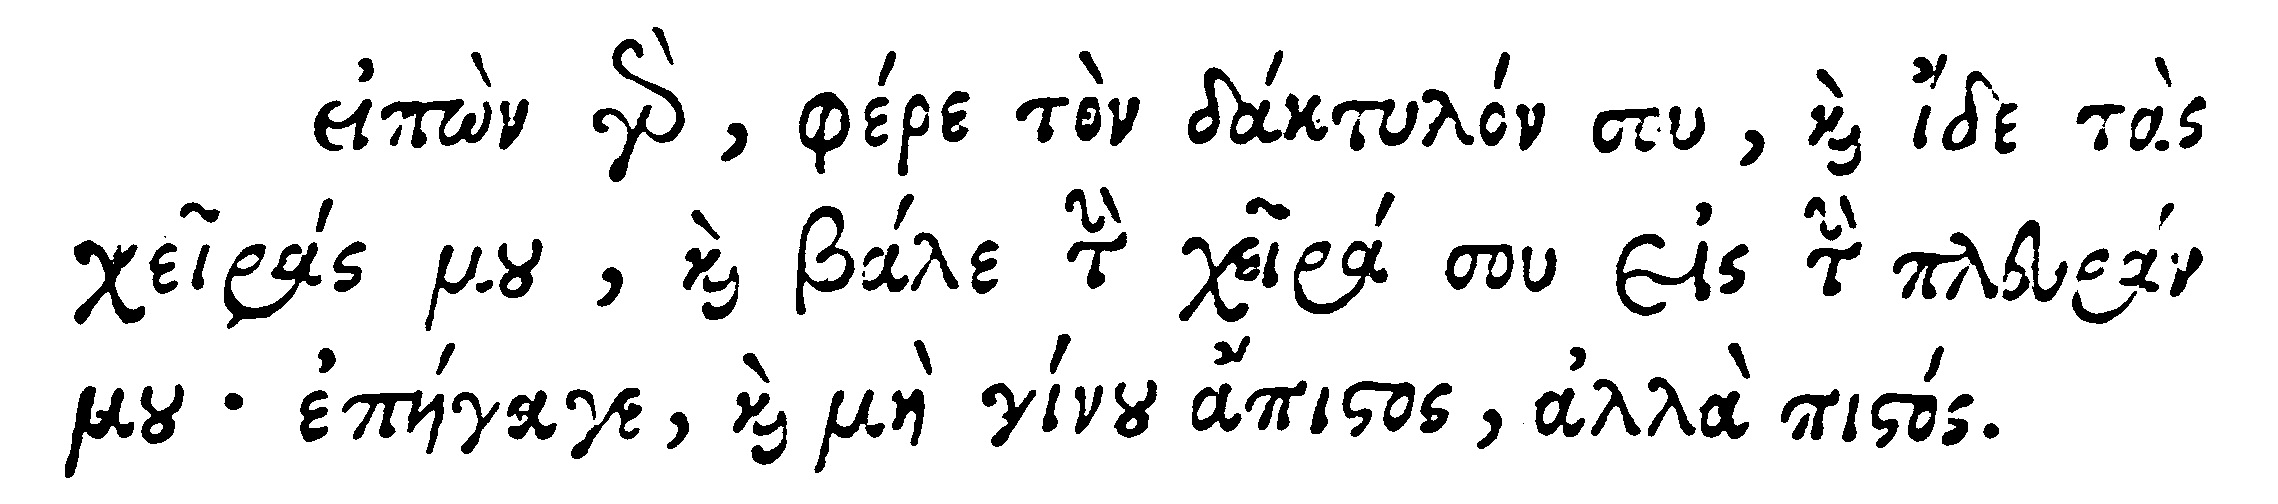 εἰπὼν γὰρ, φέρε τὸν δάκτυλόν σου, καὶ ἴδε τὰς
χεῖράς μου, καὶ βάλε τὴν χεῖρά σου εἰς τὴν πλευράν
μου · ἐπήγαγε, καὶ μὴ γίνου ἄπιστος, ἀλλὰ πιστός.